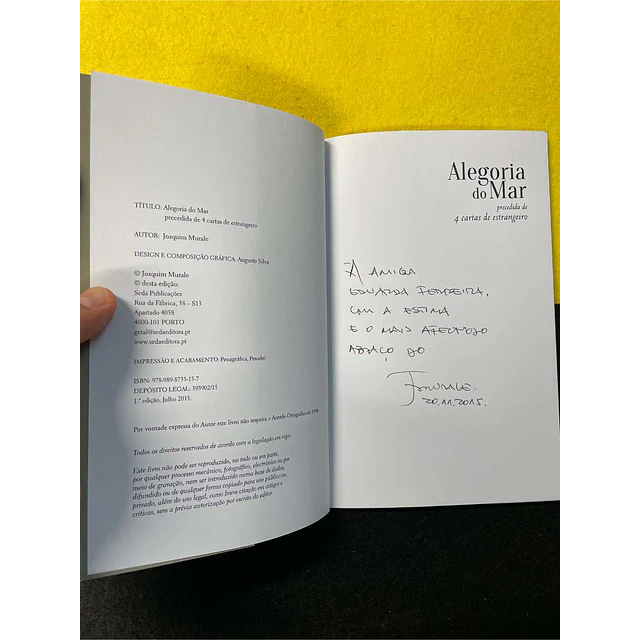 TÍTULO: Alegoria do Mar
precedida de 4 cartas de estrangeiro
AUTOR: Joaquim Murale
DESIGN E COMPOSIÇÃO GRÁFICA: Augusto Silva
© Joaquim Murale
© desta edição:
Seda Publicações
Rua da Fábrica, 38 – S13
Apartado 4058
4000-101 PORTO
geral@sedaeditora.pt
www.sedaeditora.pt
IMPRESSÃO E ACABAMENTO: Penagráfica, Penafiel
ISBN: 978-989-8735-15-7
DEPÓSITO LEGAL: 395902/15
1.ª edição, Julho 2015.
Por vontade expressa do Autor este livro não respeita o Acordo Ortográfico de 1990.
Todos os direitos reservados de acordo com a legislação em vigor.
Este livro não pode ser reproduzido, no todo ou em parte,
por qualquer processo mecânico, fotográfico, electrónico ou por
meio de gravação, nem ser introduzido numa base de dados,
difundido ou de qualquer forma copiado para uso público ou
privado, além do uso legal, como breve citação em artigos e
críticas, sem a prévia autorização por escrito do editor.
Alegoria
do Mar
precedida de
4 cartas de estrangeiro
À AMIGA
EDUARDA FERREIRA,
COM A ESTIMA
E O MAIS AFECTUOSO
ABRAÇO DO
JMURALE.
20.11.2015.